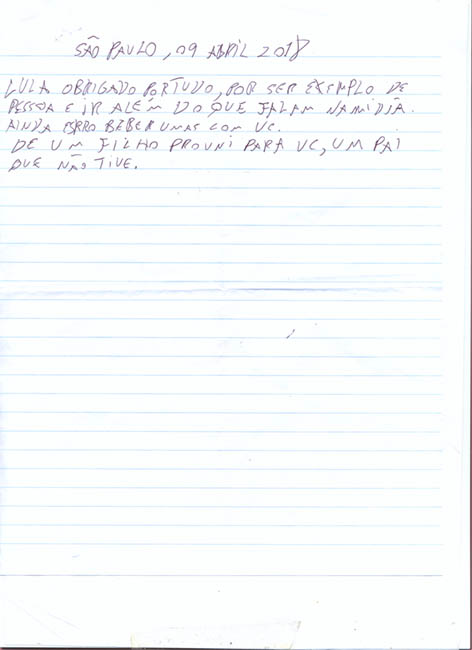 SÃO PAULO, 09 ABRIL 2018
LULA OBRIGADO POR TUDO, POR SER EXEMPLO DE
PESSOA E IR ALÉM DO QUE FALAM NA MIDIA.
AINDA BEBER UMAS COM VC.
DE UM FILHO PROUNI PARA VC, UM PAI
QUE NÃO TIVE.